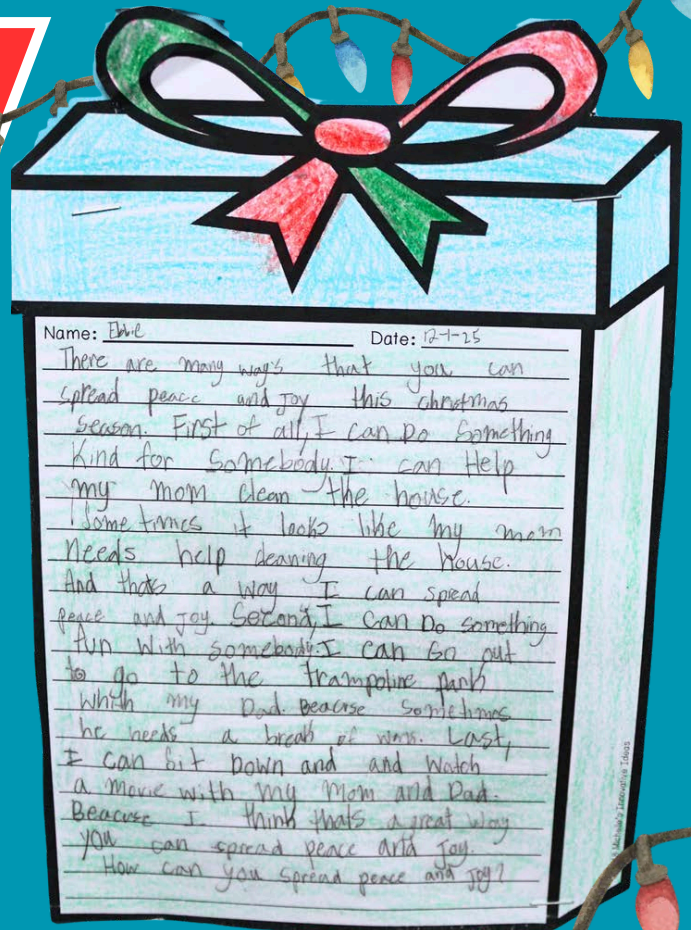 Name: Ebbie Date: 12-1-25
There are many way's that you can
spread peace and Joy this christmas
season. First of all, I can Do Something
Kind for Somebody. I can Help
my mom clean the house.
Sometimes it looks like my mom
Needs help cleaning the house.
And thats a way I can spread
peace and Joy. Second, I can Do something
fun with somebody. I can Go out
to go to the trampoline park
whith my Dad. Beacuse sometimes
he needs a break of work. Last,
I can Sit Down and and watch
a movie with my Mom and Dad.
Beacuse I think thats a great way
you can spread peace and Joy.
How can you spread peace and Joy?
Michele's Innovative Ideas